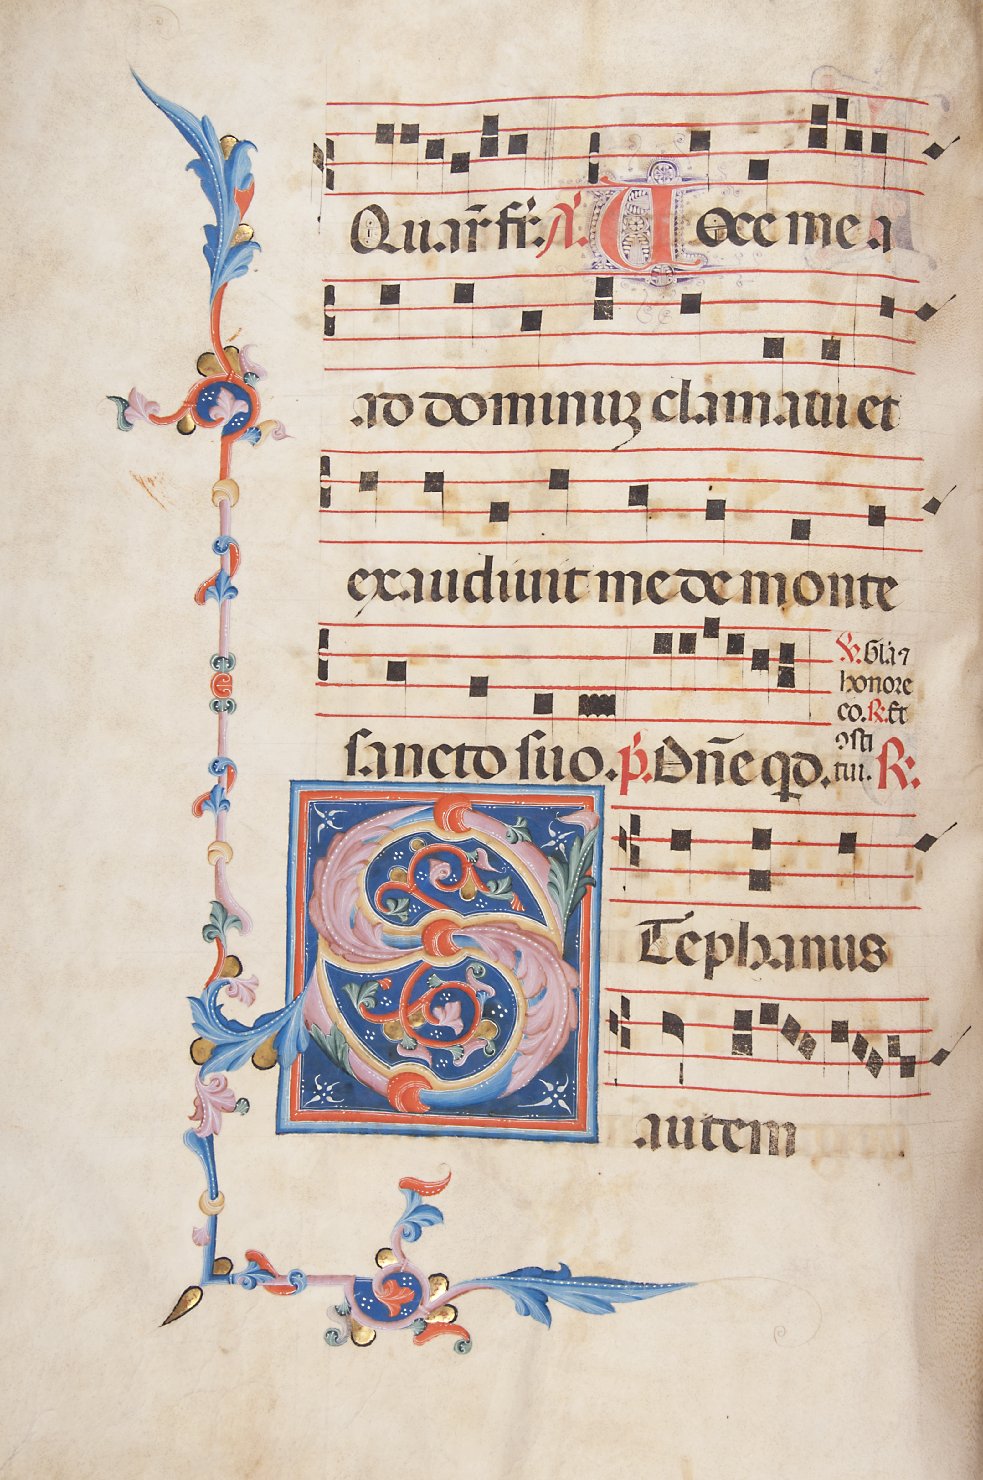 Quar̄ fr̄. A᷎. Uoce mea
ad dominuʒ clamaui et
exaudiuit me de monte
sancto suo. p̄. Dn̄e qd.
℣. Gl'a ⁊
honore
co. ℟. Et
ꝯsti
tui. ℟.
Stephanus
autem